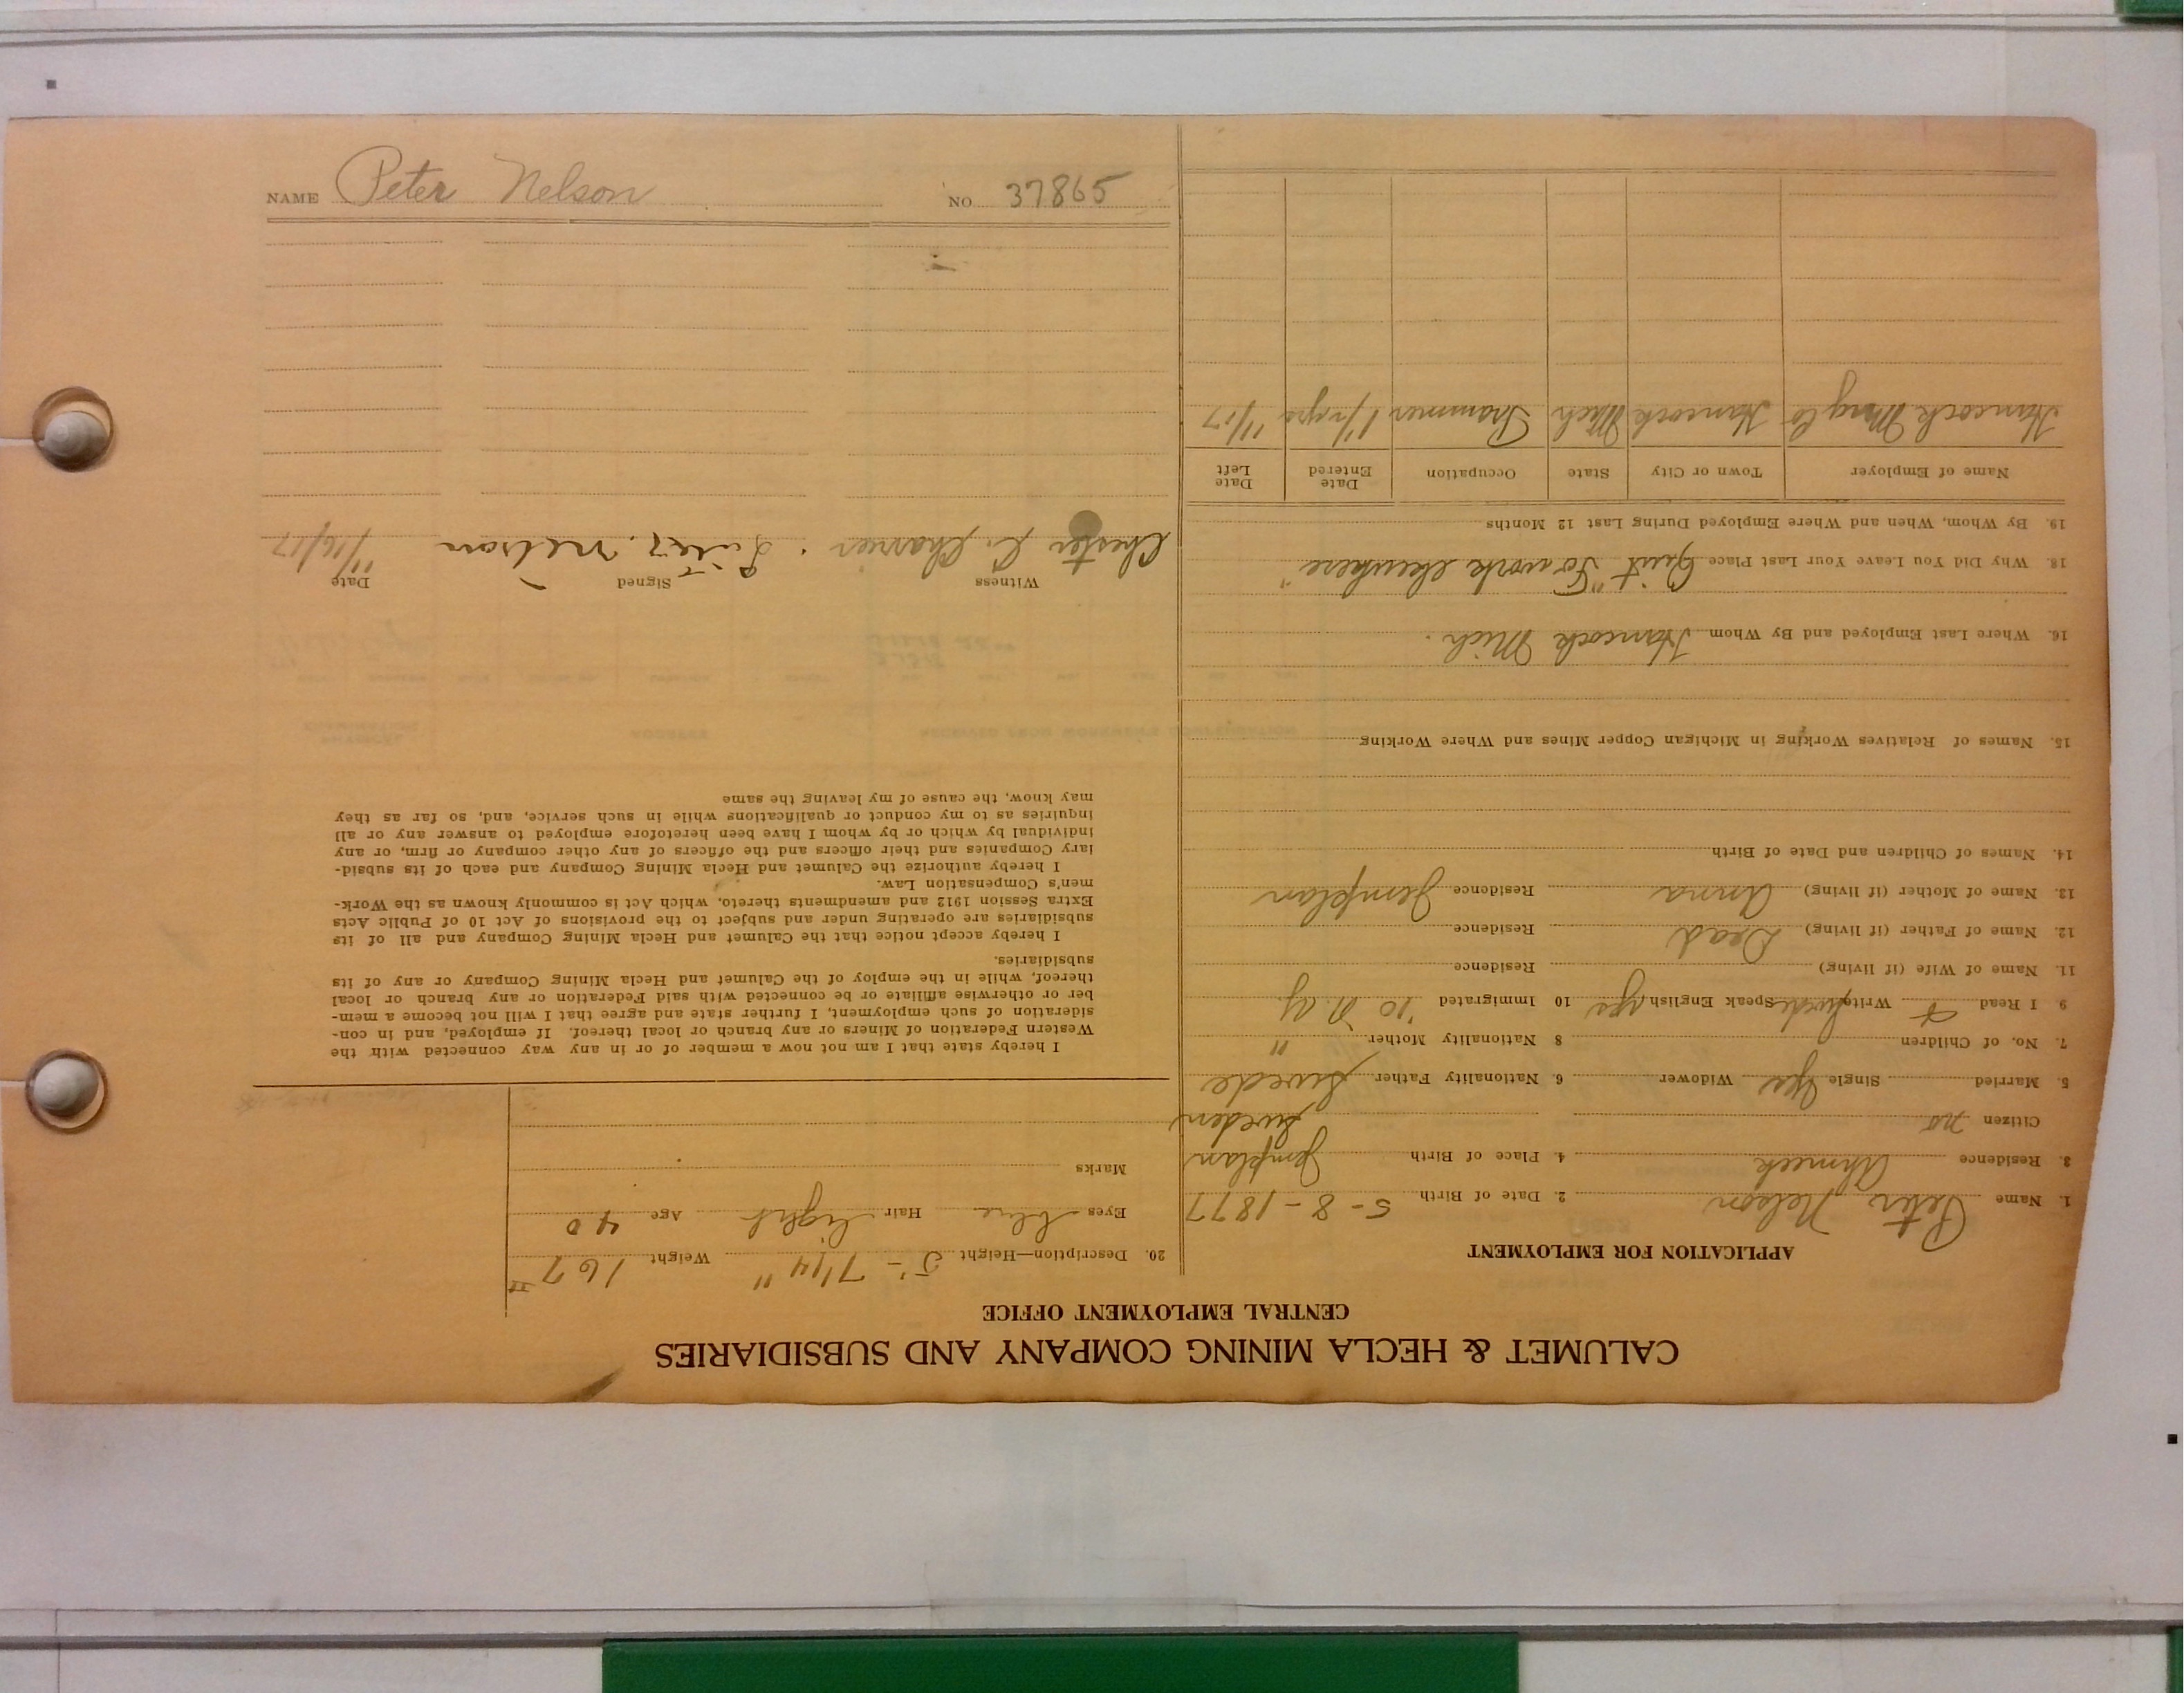 NAME Peter Nelson NO 37865
CALUMET & HECLA MINING COMPANY AND SUBSIDIARIES
CENTRAL EMPLOYMENT OFFICE
APPLICATION FOR EMPLOYMENT
1. Name Peter Nelson 2. Date of Birth 5-8-1877
3. Residence Ahmeek 4. Place of Birth Jemplan
Citizen no Sweden
5. Married Single yes Widower 6. Nationality Father Swede
7. No. of Children 8 Nationality Mother "
9 I Read Write Swede Speak English yes 10 Immigrated '10 N.Y
11. Name of Wife (if living) Residence
12. Name of Father (if living) Dead Residence
13. Name of Mother (if living) Anna Residence Jemplan
14. Names of Children and Date of Birth
15. Names of Relatives Working in Michigan Copper Mines and Where Working
16. Where Last Employed and By Whom Hancock Mich.
18. Why Did You Leave Your Last Place Quit "To work elsewhere"
19. By Whom, When and Where Employed During Last 12 Months
Name of Employer Town or City State Occupation Date Entered Date Left
Hancock Mng Co Hancock Mich Trammer 1 1/2 yrs 11/17
20. Description—Height 5'-7 1/4" Weight 167#
Eyes blue Hair light Age 40
Marks
I hereby state that I am not now a member of or in any way connected with the
Western Federation of Miners or any branch or local thereof. If employed, and in con-
sideration of such employment, I further state and agree that I will not become a mem-
ber or otherwise affiliate or be connected with said Federation or any branch or local
thereof, while in the employ of the Calumet and Hecla Mining Company or any of its
subsidiaries.
I hereby accept notice that the Calumet and Hecla Mining Company and all of its
subsidiaries are operating under and subject to the provisions of Act 10 of Public Acts
Extra Session 1912 and amendments thereto, which Act is commonly known as the Work-
men's Compensation Law.
I hereby authorize the Calumet and Hecla Mining Company and each of its subsid-
iary Companies and their officers and the officers of any other company or firm, or any
individual by which or by whom I have been heretofore employed to answer any or all
inquiries as to my conduct or qualifications while in such service, and, so far as they
may know, the cause of my leaving the same
Witness Signed Date
Chester C. Nelson 11/16/17